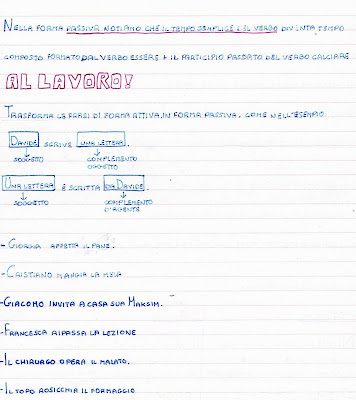 NELLA FORMA PASSIVA NOTIAMO CHE IL TEMPO SEMPLICE DEL VERBO DIVENTA TEMPO
COMPOSTO FORMATO DAL VERBO ESSERE + IL PARTICIPIO PASSATO DEL VERBO CALCIARE
AL LAVORO!
TRASFORMA LE FRASI DI FORMA ATTIVA, IN FORMA PASSIVA, COME NELL'ESEMPIO
DAVIDE SCRIVE UNA LETTERA.
SOGGETTO COMPLEMENTO OGGETTO
UNA LETTERA È SCRITTA DA DAVIDE.
SOGGETTO COMPLEMENTO D'AGENTE
- GIORGIA AFFETTA IL PANE.
- CRISTIANO MANGIA LA MELA
- GIACOMO INVITA A CASA SUA MAKSIM.
- FRANCESCA RIPASSA LA LEZIONE
- IL CHIRURGO OPERA IL MALATO.
- IL TOPO ROSICCHIA IL FORMAGGIO